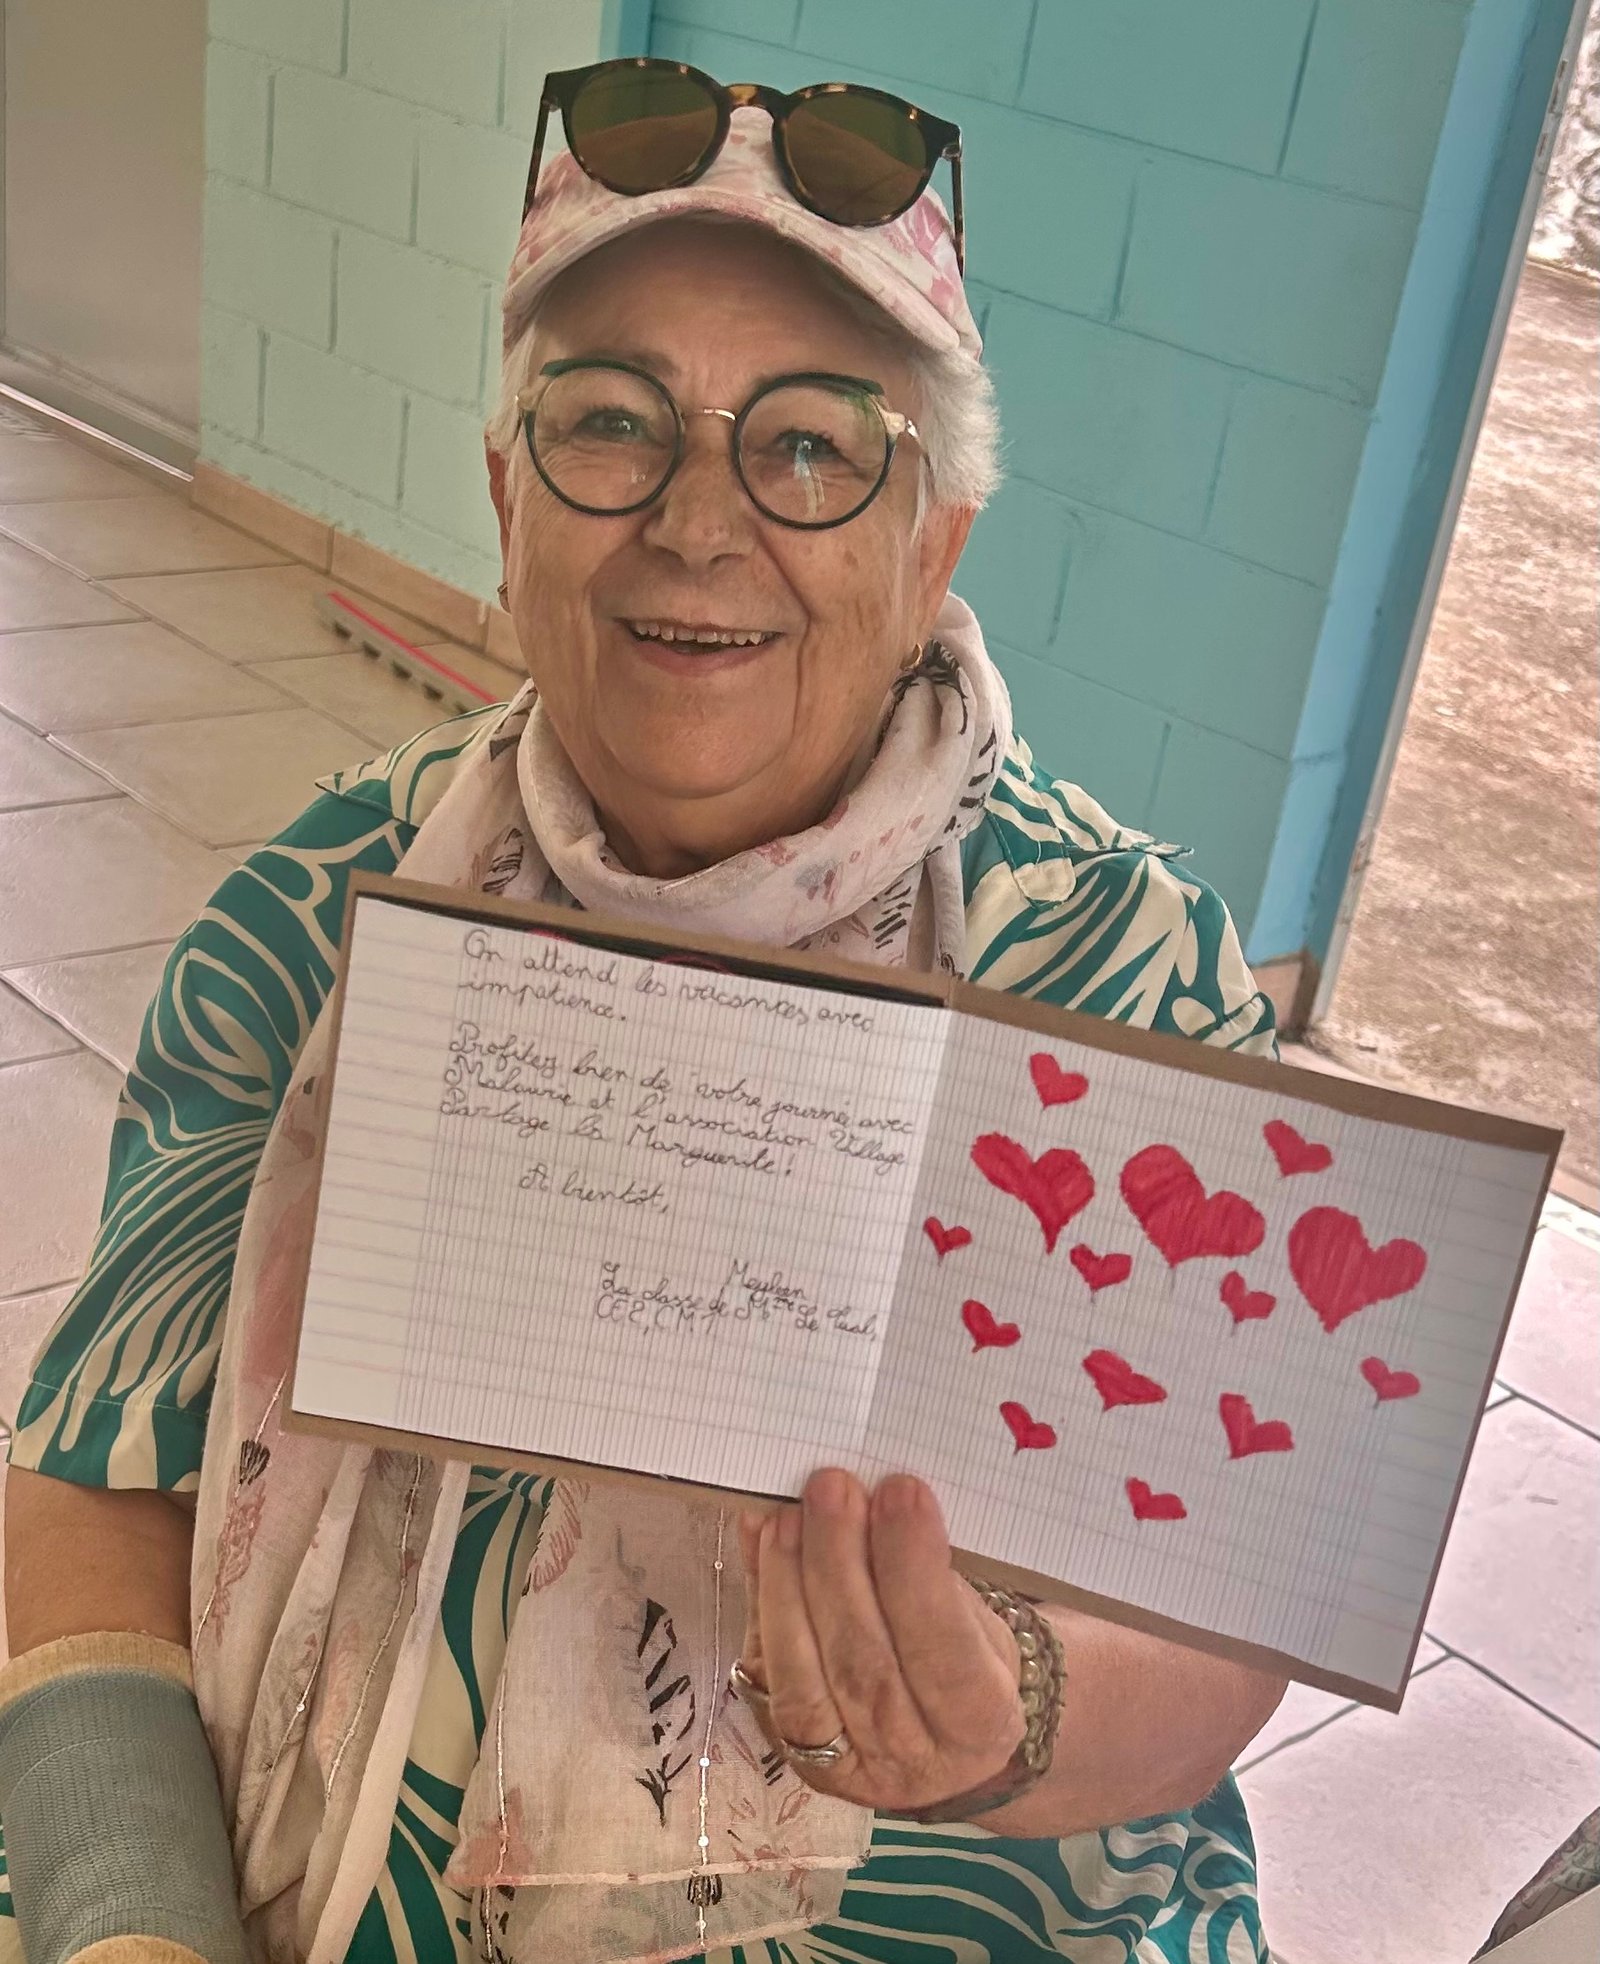 On attend les vacances avec
impatience.
Profitez bien de votre journée avec
Malaurie et l'association Village
Partage la Marguerite !
A bientôt,
La classe de Mme Le
CE2, CM1